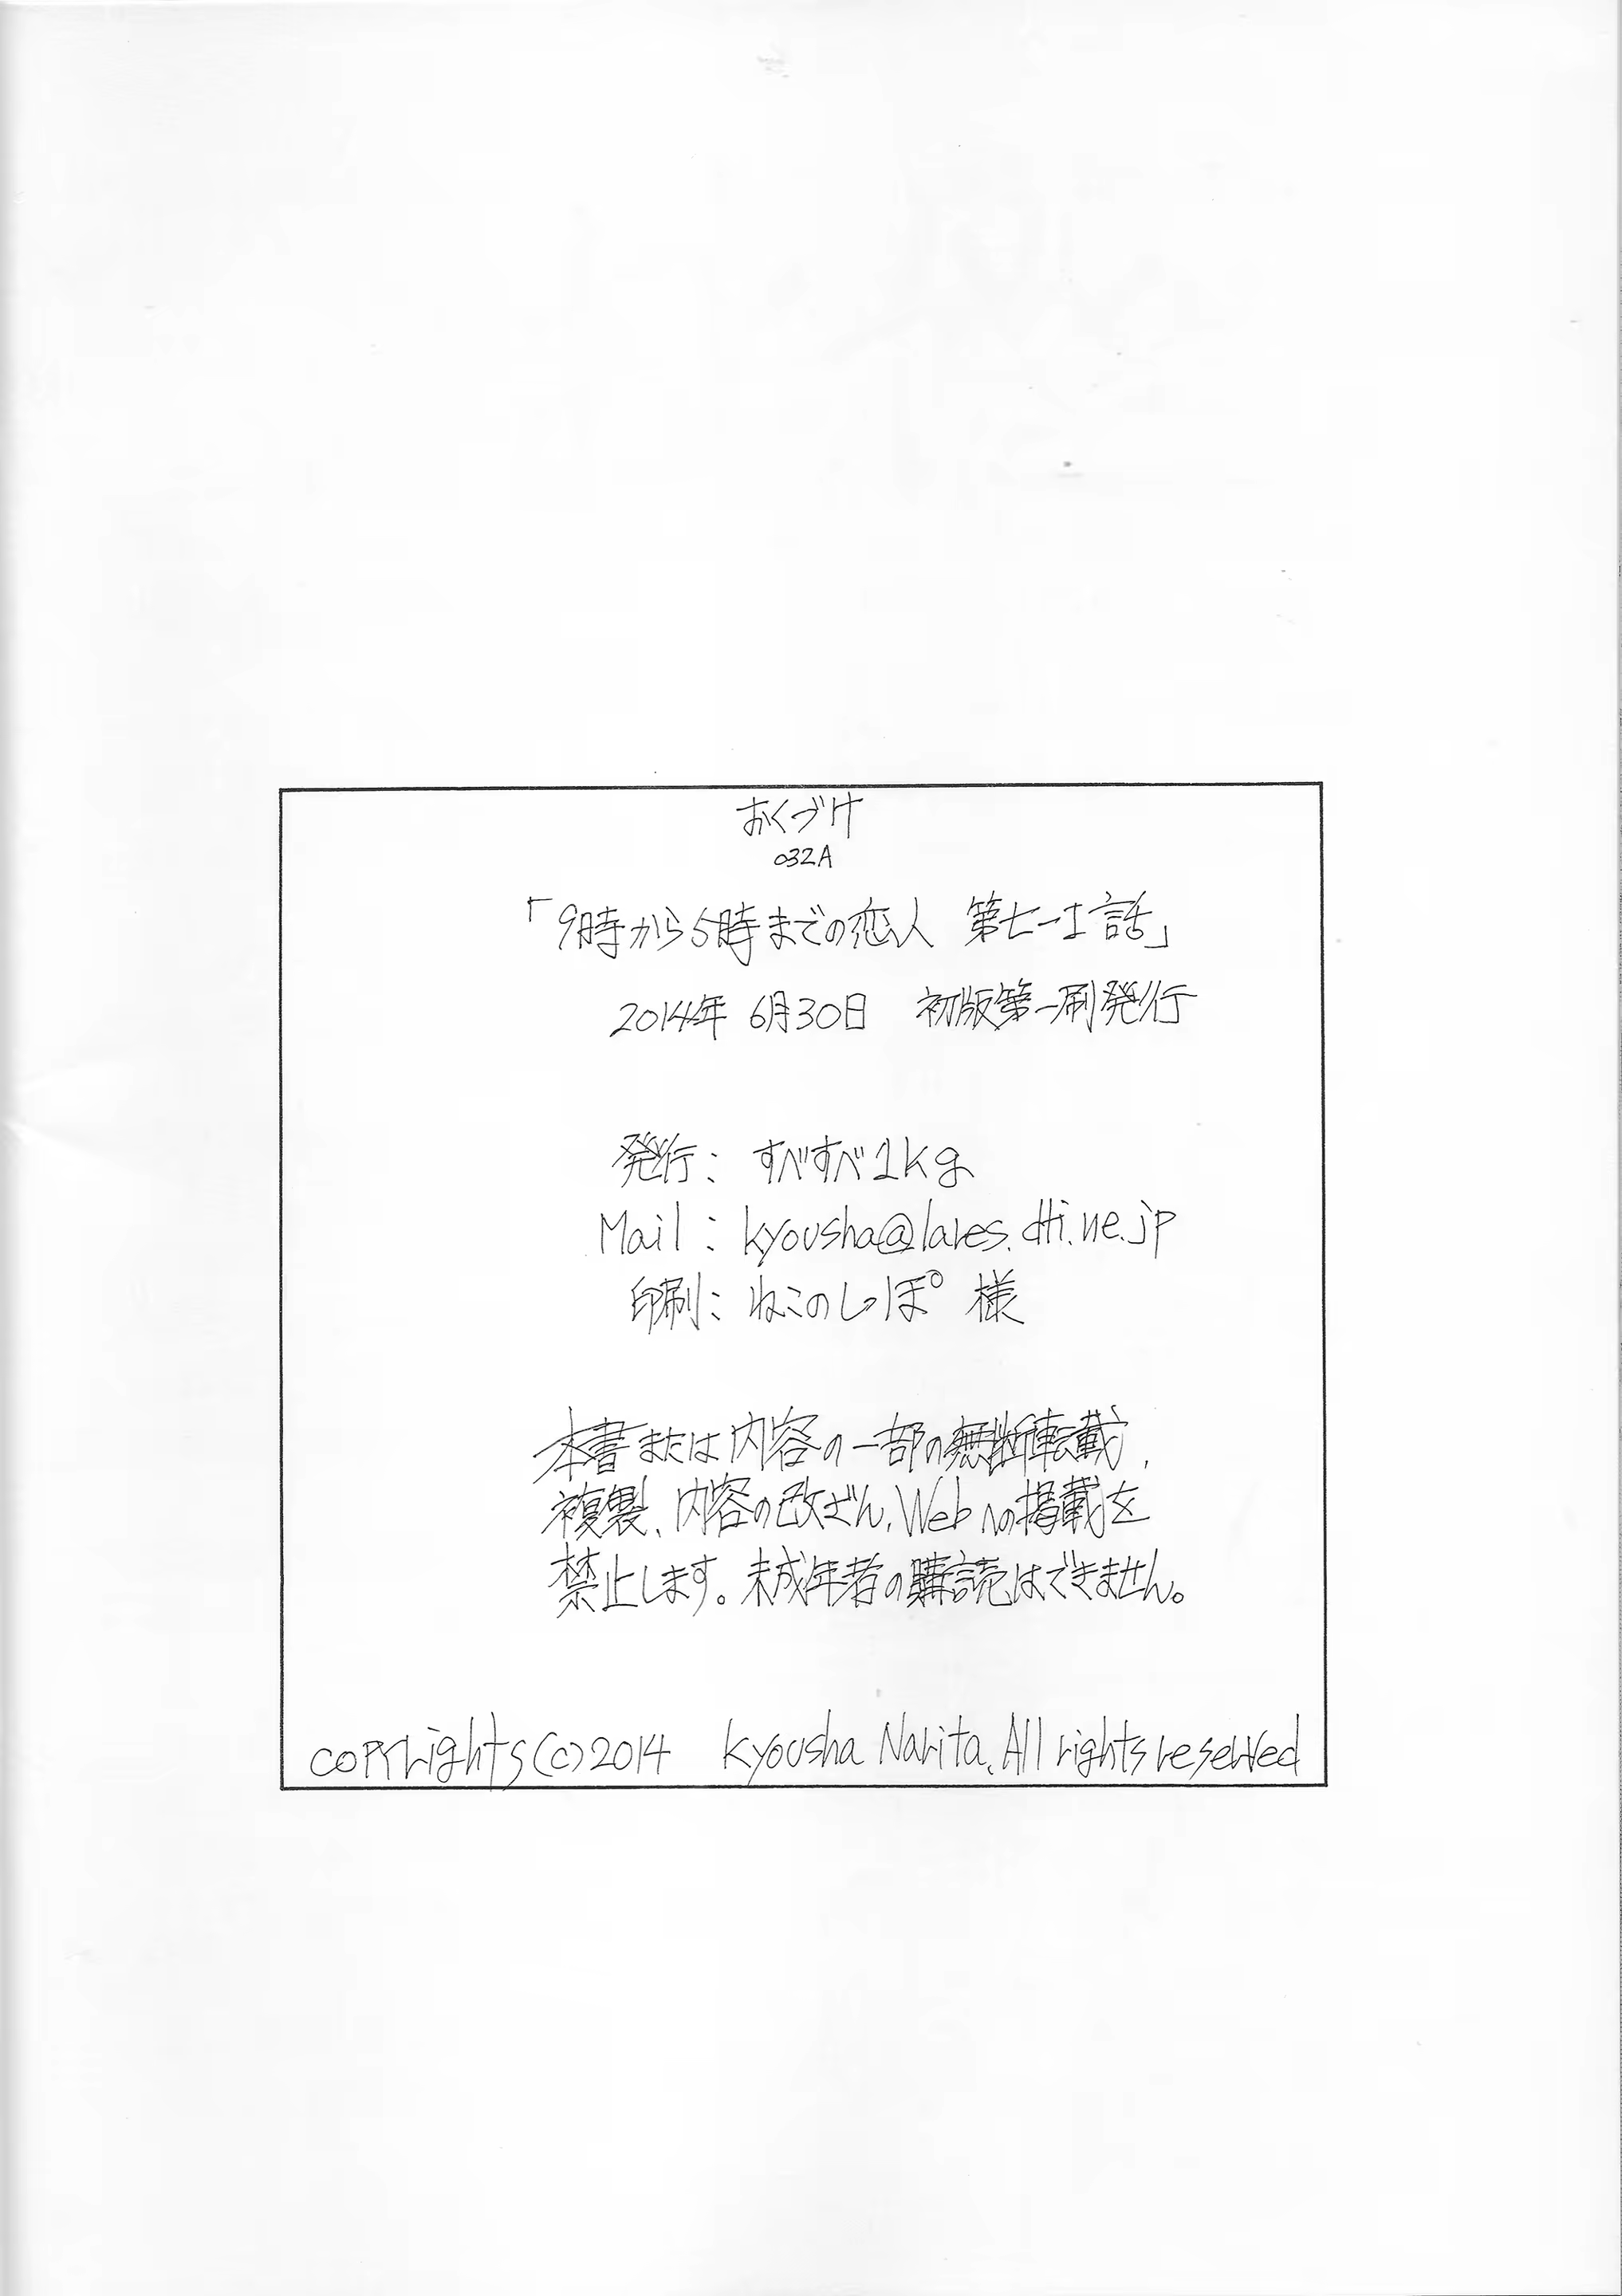 おくづけ
032A
「9時から5時までの恋人 第七-I話」
2014年 6月30日 初版第一刷発行
発行: すべすべ1kg
Mail: kyousha@lares.dti.ne.jp
印刷: ねこのしっぽ 様
本書または内容の一部の無断転載、
複製、内容の改ざん、Webへの掲載を
禁止します。未成年者の購読はできません。
copyrights(c)2014 Kyousha Narita. All rights reserved